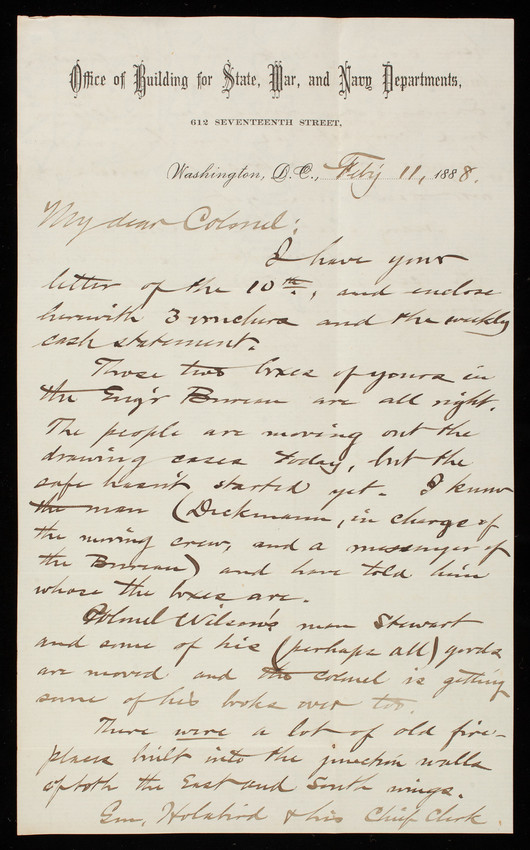 Office of Building for State, War, and Navy Departments,
612 SEVENTEENTH STREET,
Washington, D.C., Feb'y 11, 1888.
My dear Colonel:
I have your
letter of the 10th, and enclose
herewith 3 vouchers and the weekly
cash statement.
Those two boxes of yours in
the Eng'r Bureau are all right.
The people are moving out the
drawing cases today, but the
safe hasn't started yet. I know
the man (Dickmann, in charge of
the moving crew, and a messenger of
the Bureau) and have told him
whose the boxes are.
Colonel Wilson's man Stewart
and some of his (perhaps all) goods
are moved and the colonel is getting
some of his books over too.
There were a lot of old fire-
places built into the junction walls
of both the East and South wings.
Gen. Holabird & his Chief Clerk